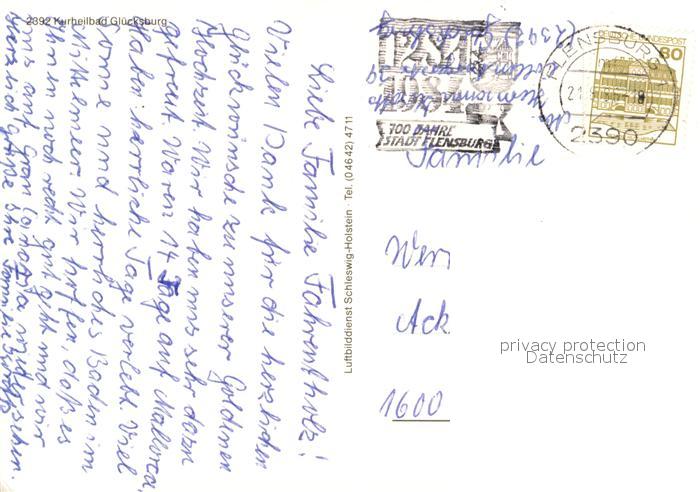 2392 Kurheilbad Glücksburg
Liebe Familie Fahrentholz!
Vielen Dank für die herzlichen
Glückwünsche zu unserer Goldenen
Hochzeit. Wir haben uns sehr dazu
gefreut. Waren 14 Tage auf Mallorca,
haben herrliche Tage verlebt. Viel
Sonne und herrliches Baden im
Mittelmeer. Wir hoffen, daß es
Ihnen noch recht gut geht und wir
uns auf Gran Canaria wiedersehen.
Herzliche Grüße Ihre Familie
Luftbilddienst Schleswig-Holstein · Tel. (04642) 4711
(2392) Glücksburg
700 JAHRE
STADT FLENSBURG
FLENSBURG
2390
BUNDESPOST
80
Familie
Wer
Ack
1600
privacy protection
Datenschutz